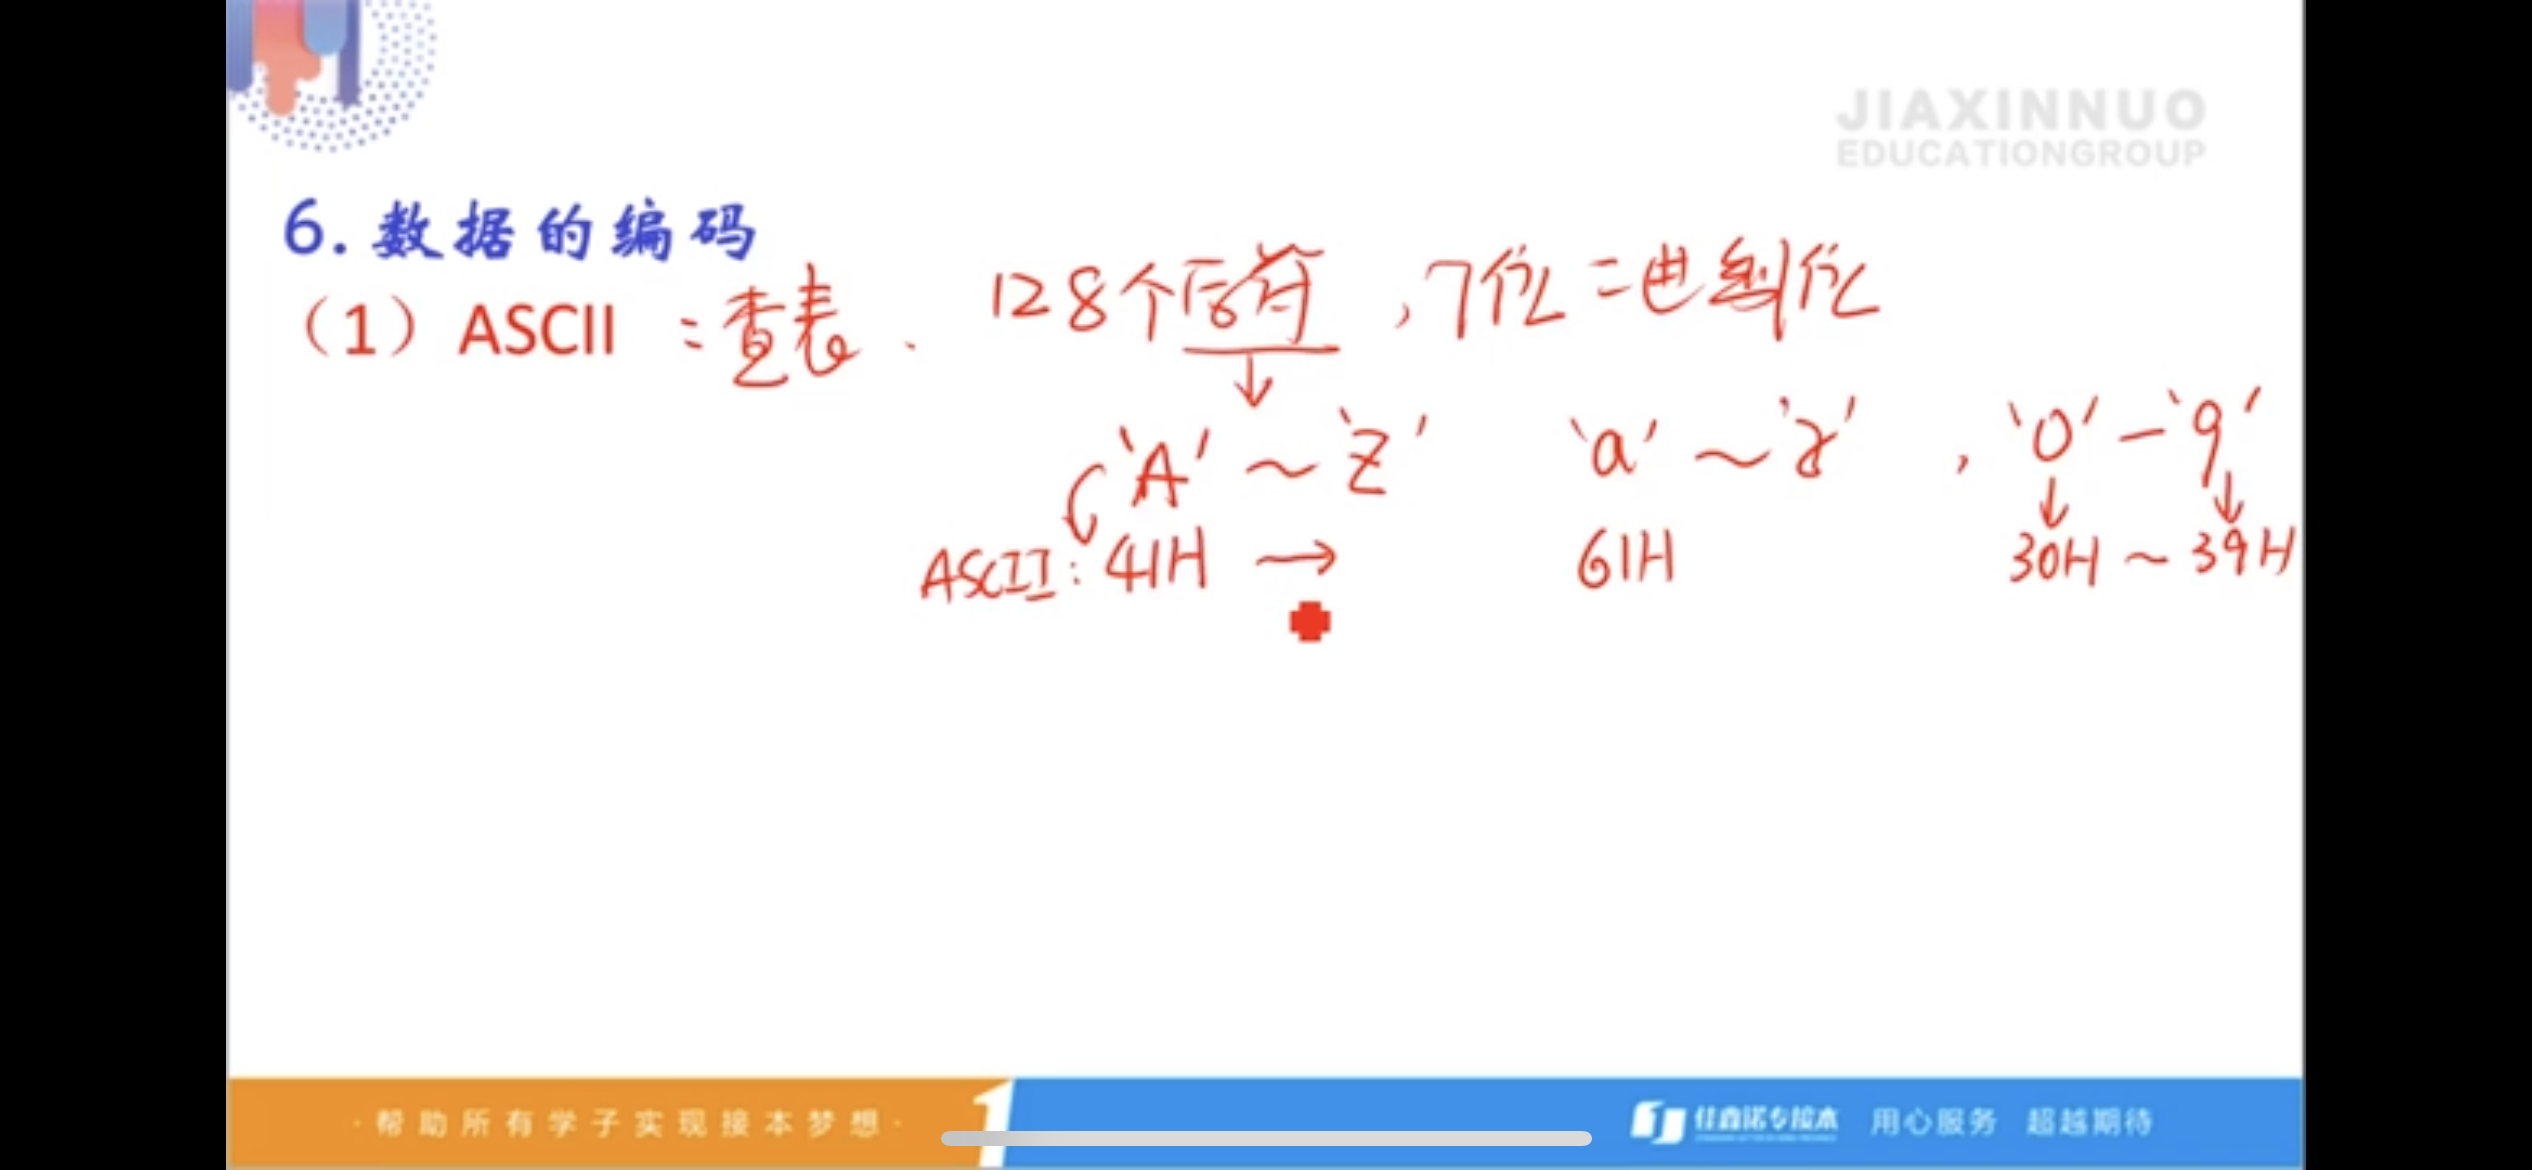 JIAXINNUO
EDUCATIONGROUP
6.数据的编码
（1）ASCII：查表. 128个符, 7位二进制位
'A' ~ 'Z' 'a' ~ 'z' , '0' - '9'
ASCII: 41H → 61H 30H ~ 39H
·帮助所有学子实现接本梦想·
1
佳鑫诺专接本 用心服务 超越期待